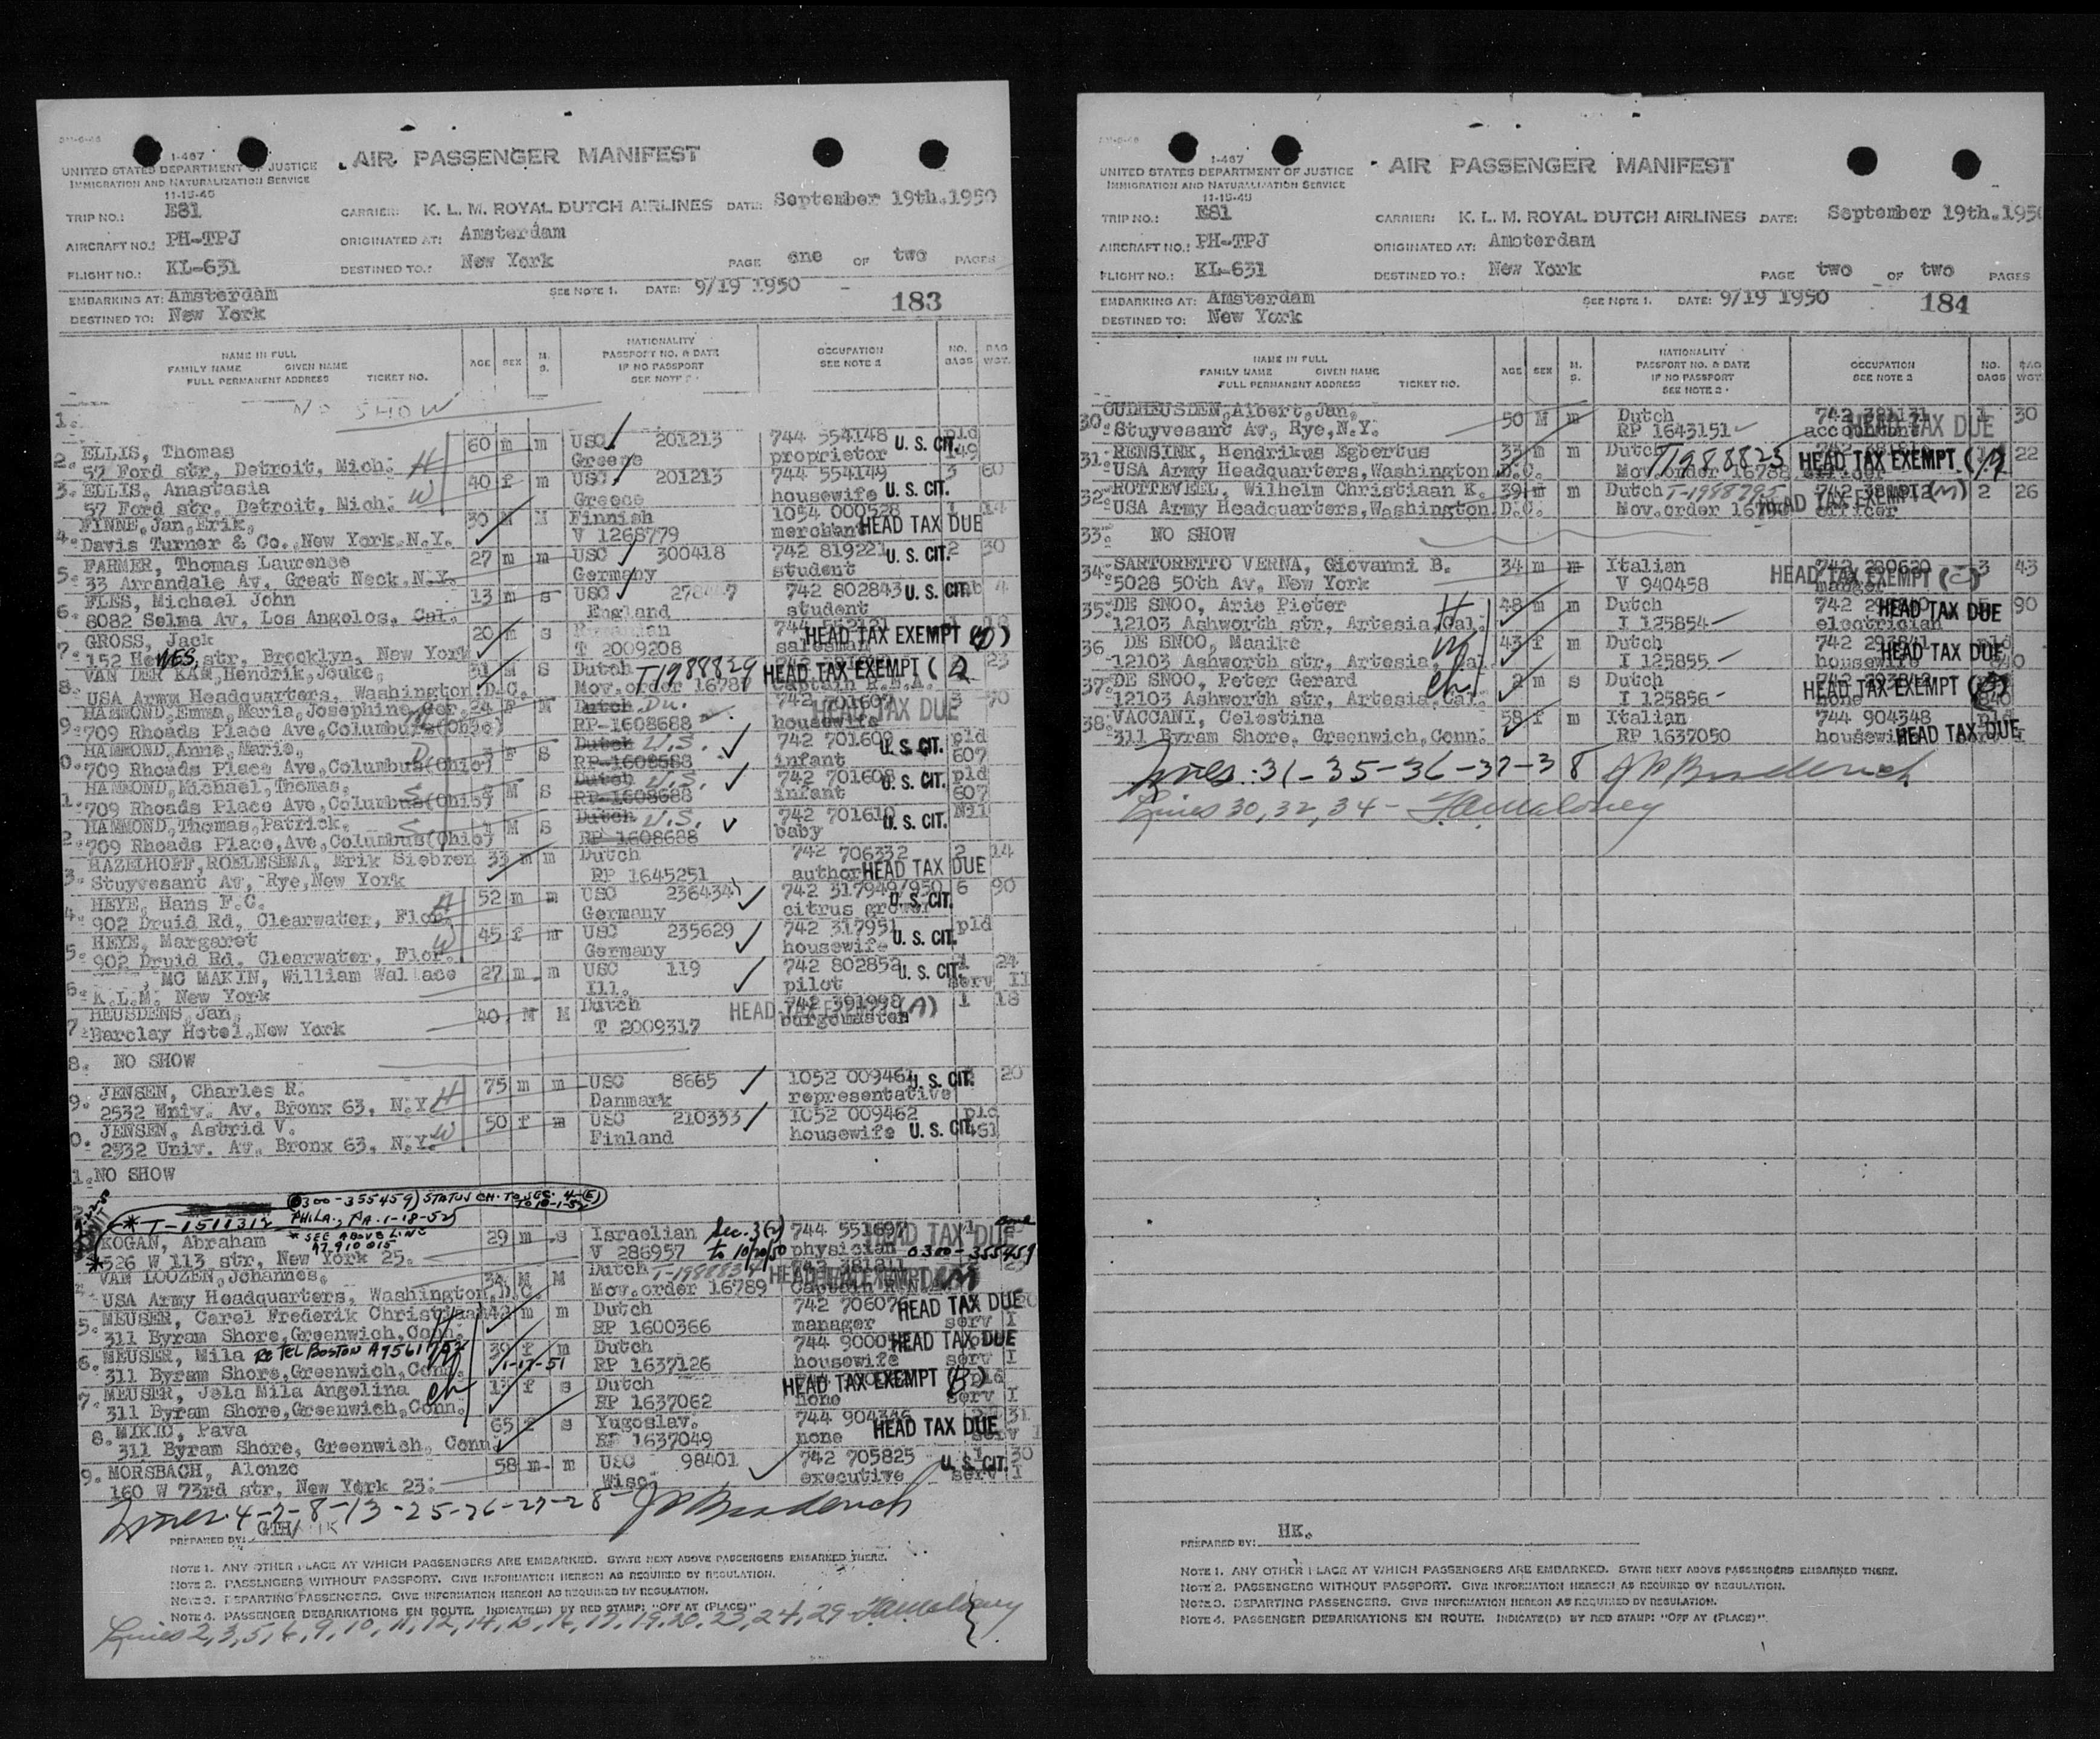 I-467
UNITED STATES DEPARTMENT OF JUSTICE
IMMIGRATION AND NATURALIZATION SERVICE
11-15-45
AIR PASSENGER MANIFEST
TRIP NO.: E81 CARRIER: K. L. M. ROYAL DUTCH AIRLINES DATE: September 19th.1950
AIRCRAFT NO.: PH-TPJ ORIGINATED AT: Amsterdam
FLIGHT NO.: KL-631 DESTINED TO.: New York PAGE one OF two PAGES
EMBARKING AT: Amsterdam SEE NOTE 1. DATE: 9/19 1950
DESTINED TO: New York 183
NAME IN FULL FAMILY NAME GIVEN NAME FULL PERMANENT ADDRESS TICKET NO. AGE SEX M. S. NATIONALITY PASSPORT NO. & DATE IF NO PASSPORT SEE NOTE 2 OCCUPATION SEE NOTE 2 NO. BAGS BAG WGT.
1. NO SHOW
ELLIS, Thomas 60 m m USC 201213 744 554148 U. S. CIT. pld
2. 57 Ford str, Detroit, Mich. H Greece proprietor 149
3. ELLIS, Anastasia W 40 f m USC 201213 744 554149 3 60
57 Ford str, Detroit, Mich. Greece housewife U. S. CIT.
FINNE, Jan, Erik, 30 M M Finnish 1054 000528 1 14
4. Davis Turner & Co., New York N.Y. V 1268779 merchant HEAD TAX DUE
FARMER, Thomas Laurence 27 m m USC 300418 742 819221 U. S. CIT. 2 30
5. 33 Arrandale Av, Great Neck, N.Y. Germany student
FLES, Michael John 13 m s USC 742 802843 U. S. CIT. 4
6. 8082 Selma Av, Los Angelos, Cal. England student
GROSS, Jack 20 m s HEAD TAX EXEMPT
7. 152 str, Brocklyn, New York T 2009208 salesman
VAN DER KAM, Hendrik, Jouke, 31 M S Dutch T1988829 HEAD TAX EXEMPT 23
8. USA Army Headquarters, Washington D.C. Mov.order 16787 Captain R.N.A.
HAMMOND, Emma, Maria, Josephine, Ger. 24 F M Dutch Du. 742 701607 3 70
9. 709 Rhoads Place Ave, Columbus (Ohio) RP-1608688 housewife HEAD TAX DUE
HAMMOND, Anne, Marie, D 3 F S Dutch U.S. 742 701609 U. S. CIT. pld
0. 709 Rhoads Place Ave, Columbus (Ohio) RP-1608688 infant 607
HAMMOND, Michael, Thomas, S M S Dutch U.S. 742 701608 U. S. CIT. pld
1. 709 Rhoads Place Ave, Columbus (Ohio) RP-1608688 infant 607
HAMMOND, Thomas, Patrick, S 1 M S Dutch U.S. 742 701610 U. S. CIT. Nil
2. 709 Rhoads Place, Ave, Columbus (Ohio) RP 1608688 baby
HAZELHOFF, ROELFSEMA, Erik Siebren 33 m m Dutch 742 706332 2 14
3. Stuyvesant Av, Rye, New York RP 1645251 author HEAD TAX DUE
HEYE, Hans F.C. H 52 m m USC 236434 742 317949/950 6 90
4. 902 Druid Rd, Clearwater, Flor. Germany citrus grower U. S. CIT.
HEYE, Margaret W 45 f m USC 235629 742 317951 pld
5. 902 Druid Rd, Clearwater, Flor. Germany housewife U. S. CIT.
MC MAKIN, William Wallace 27 m m USC 119 742 802852 U. S. CIT. 1 24
6. K.L.M. New York Ill. pilot serv II
HEUSDENS, Jan, 40 M M Dutch 742 391998 1 18
7. Barclay Hotel, New York T 2009317 HEAD TAX EXEMPT (A) burgomaster
8. NO SHOW
9. JENSEN, Charles R. H 75 m m USC 8665 1052 009461 U. S. CIT. 20
2532 Univ. Av, Bronx 63, N.Y. Danmark representative
0. JENSEN, Astrid V. W 50 f m USC 210333 1052 009462 pld
2532 Univ. Av, Bronx 63, N.Y. Finland housewife U. S. CIT. 461
1. NO SHOW
0300-355459 STATUS CH. TO SEC. 4-(E)
* T-1511312 PHILA., PA. 1-18-52
* SEE ABOVE LINE
KOGAN, Abraham 29 m s Israelian 744 551697 HEAD TAX DUE
526 W 113 str, New York 25. V 286957 to 10/20/50 physician 0300-355459
VAN LOOZEN, Johannes, 34 M M Dutch HEAD TAX EXEMPT
USA Army Headquarters, Washington, D.C. Mov.order 16789
MEUSER, Carel Frederik Christiaan m m Dutch HEAD TAX DUE
5. 311 Byram Shore, Greenwich, Conn. RP 1600366 manager serv I
6. MEUSER, Mila RE TEL BOSTON 39 f m Dutch HEAD TAX DUE
311 Byram Shore, Greenwich, Conn. 1-17-51 RP 1637126 housewife serv I
7. MEUSER, Jela Mila Angelina ch f s Dutch HEAD TAX EXEMPT (B) pld
311 Byram Shore, Greenwich, Conn. RP 1637062 none serv I
8. MIKIC, Pava 65 f s Yugoslav. 744 904346 31
311 Byram Shore, Greenwich, Conn. RP 1637049 none HEAD TAX DUE serv
9. MORSBACH, Alonzo 58 m m USC 98401 742 705825 U. S. CIT. 30
160 W 73rd str, New York 23. Wisc. executive serv I
Lines 4-7-8-13-25-26-27-28- J P Broderick
PREPARED BY: GTH/
NOTE 1. ANY OTHER PLACE AT WHICH PASSENGERS ARE EMBARKED. STATE NEXT ABOVE PASSENGERS EMBARKED THERE.
NOTE 2. PASSENGERS WITHOUT PASSPORT. GIVE INFORMATION HEREON AS REQUIRED BY REGULATION.
NOTE 3. DEPARTING PASSENGERS. GIVE INFORMATION HEREON AS REQUIRED BY REGULATION.
NOTE 4. PASSENGER DEBARKATIONS EN ROUTE. INDICATE(D) BY RED STAMP: "OFF AT (PLACE)"
Lines 2,3,5,6,9,10,11,12,14,15,16,17,19,20,23,24,29 - F.A. Maloney
I-467
UNITED STATES DEPARTMENT OF JUSTICE
IMMIGRATION AND NATURALIZATION SERVICE
11-15-45
AIR PASSENGER MANIFEST
TRIP NO.: E81 CARRIER: K. L. M. ROYAL DUTCH AIRLINES DATE: September 19th.1950
AIRCRAFT NO.: PH-TPJ ORIGINATED AT: Amsterdam
FLIGHT NO.: KL-631 DESTINED TO.: New York PAGE two OF two PAGES
EMBARKING AT: Amsterdam SEE NOTE 1. DATE: 9/19 1950
DESTINED TO: New York 184
NAME IN FULL FAMILY NAME GIVEN NAME FULL PERMANENT ADDRESS TICKET NO. AGE SEX M. S. NATIONALITY PASSPORT NO. & DATE IF NO PASSPORT SEE NOTE 2 OCCUPATION SEE NOTE 2 NO. BAGS BAG WGT.
OUDHEUSDEN, Albert, Jan, 50 M m Dutch 742 381171 1 30
30. Stuyvesant Av, Rye, N.Y. RP 1643151 accountant HEAD TAX DUE
31. RENSINK, Hendrikus Egbertus 33 m m Dutch T1988825 HEAD TAX EXEMPT 22
USA Army Headquarters, Washington D.C. Mov.order 16788 officer
32. ROTTEVEEL, Wilhelm Christiaan K. 39 m m Dutch HEAD TAX EXEMPT 2 26
USA Army Headquarters, Washington D.C. Mov.order officer
33. NO SHOW
34. SARTORETTO VERNA, Giovanni B. 34 m m Italian 742 280620 3 43
5028 50th Av, New York V 940458 HEAD TAX EXEMPT (C)
35. DE SNOO, Arie Pieter H 48 m m Dutch HEAD TAX DUE 90
12103 Ashworth str, Artesia, Cal. I 125854 electrician
36 DE SNOO, Maaike W 43 f m Dutch 742 293841 pld
12103 Ashworth str, Artesia, Cal. I 125855 housewife HEAD TAX DUE 840
37. DE SNOO, Peter Gerard ch 2 m s Dutch HEAD TAX EXEMPT (B)
12103 Ashworth str, Artesia, Cal. I 125856 none 840
38. VACCANI, Celestina 58 f m Italian 744 904348
311 Byram Shore, Greenwich, Conn. RP 1637050 housewife HEAD TAX DUE
Lines: 31-35-36-37-38 J P Broderick
Lines 30, 32, 34 - F.A. Maloney
PREPARED BY: HK.
NOTE 1. ANY OTHER PLACE AT WHICH PASSENGERS ARE EMBARKED. STATE NEXT ABOVE PASSENGERS EMBARKED THERE.
NOTE 2. PASSENGERS WITHOUT PASSPORT. GIVE INFORMATION HEREON AS REQUIRED BY REGULATION.
NOTE 3. DEPARTING PASSENGERS. GIVE INFORMATION HEREON AS REQUIRED BY REGULATION.
NOTE 4. PASSENGER DEBARKATIONS EN ROUTE. INDICATE(D) BY RED STAMP: "OFF AT (PLACE)".